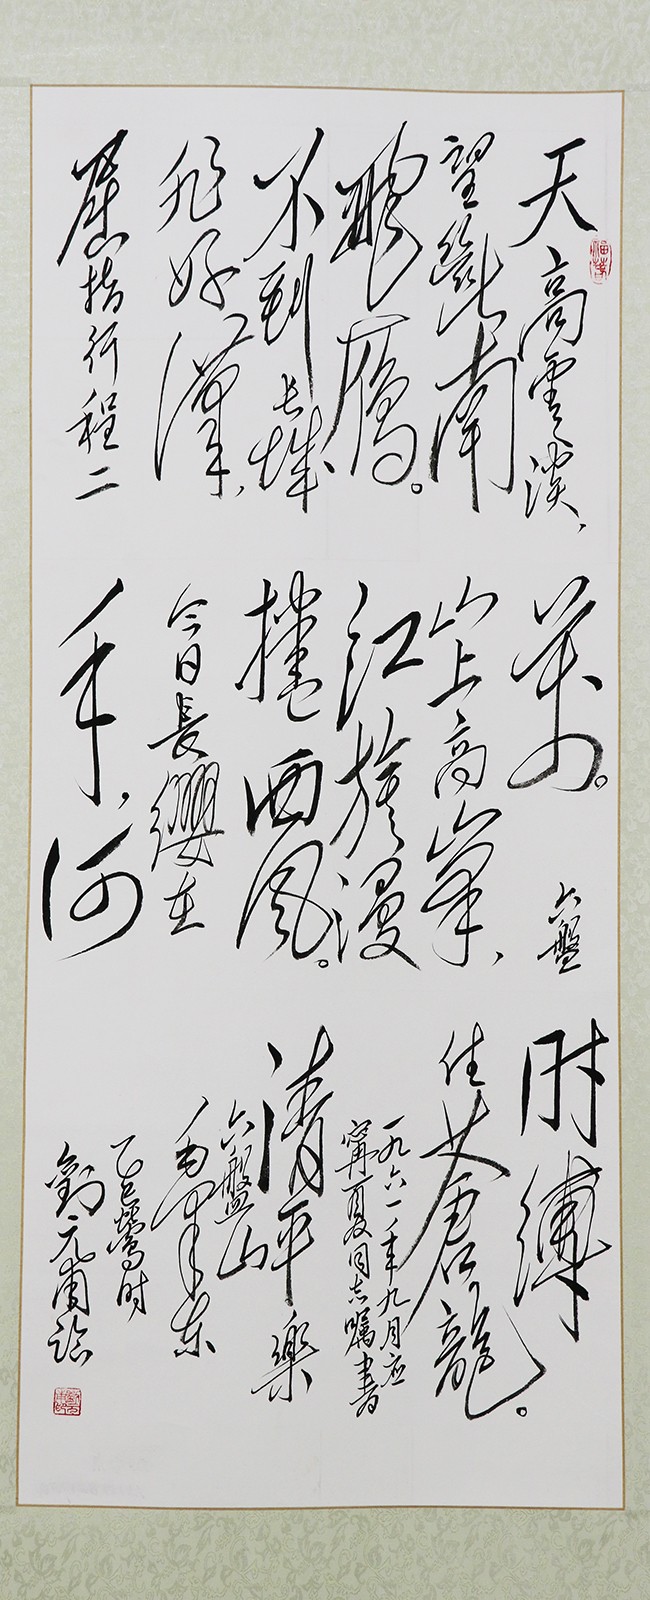 天高雲淡,
望斷南
飛雁。
不到长城
非好漢,
屈指行程二
萬。六盤
山上高峯,
红旗漫
捲西風。
今日長纓在
手,何
时縛
住蒼龍。
一九六一年九月应
寧夏同志嘱書
清平樂
六盤山
毛澤东
乙巳鶯时
劉元甫